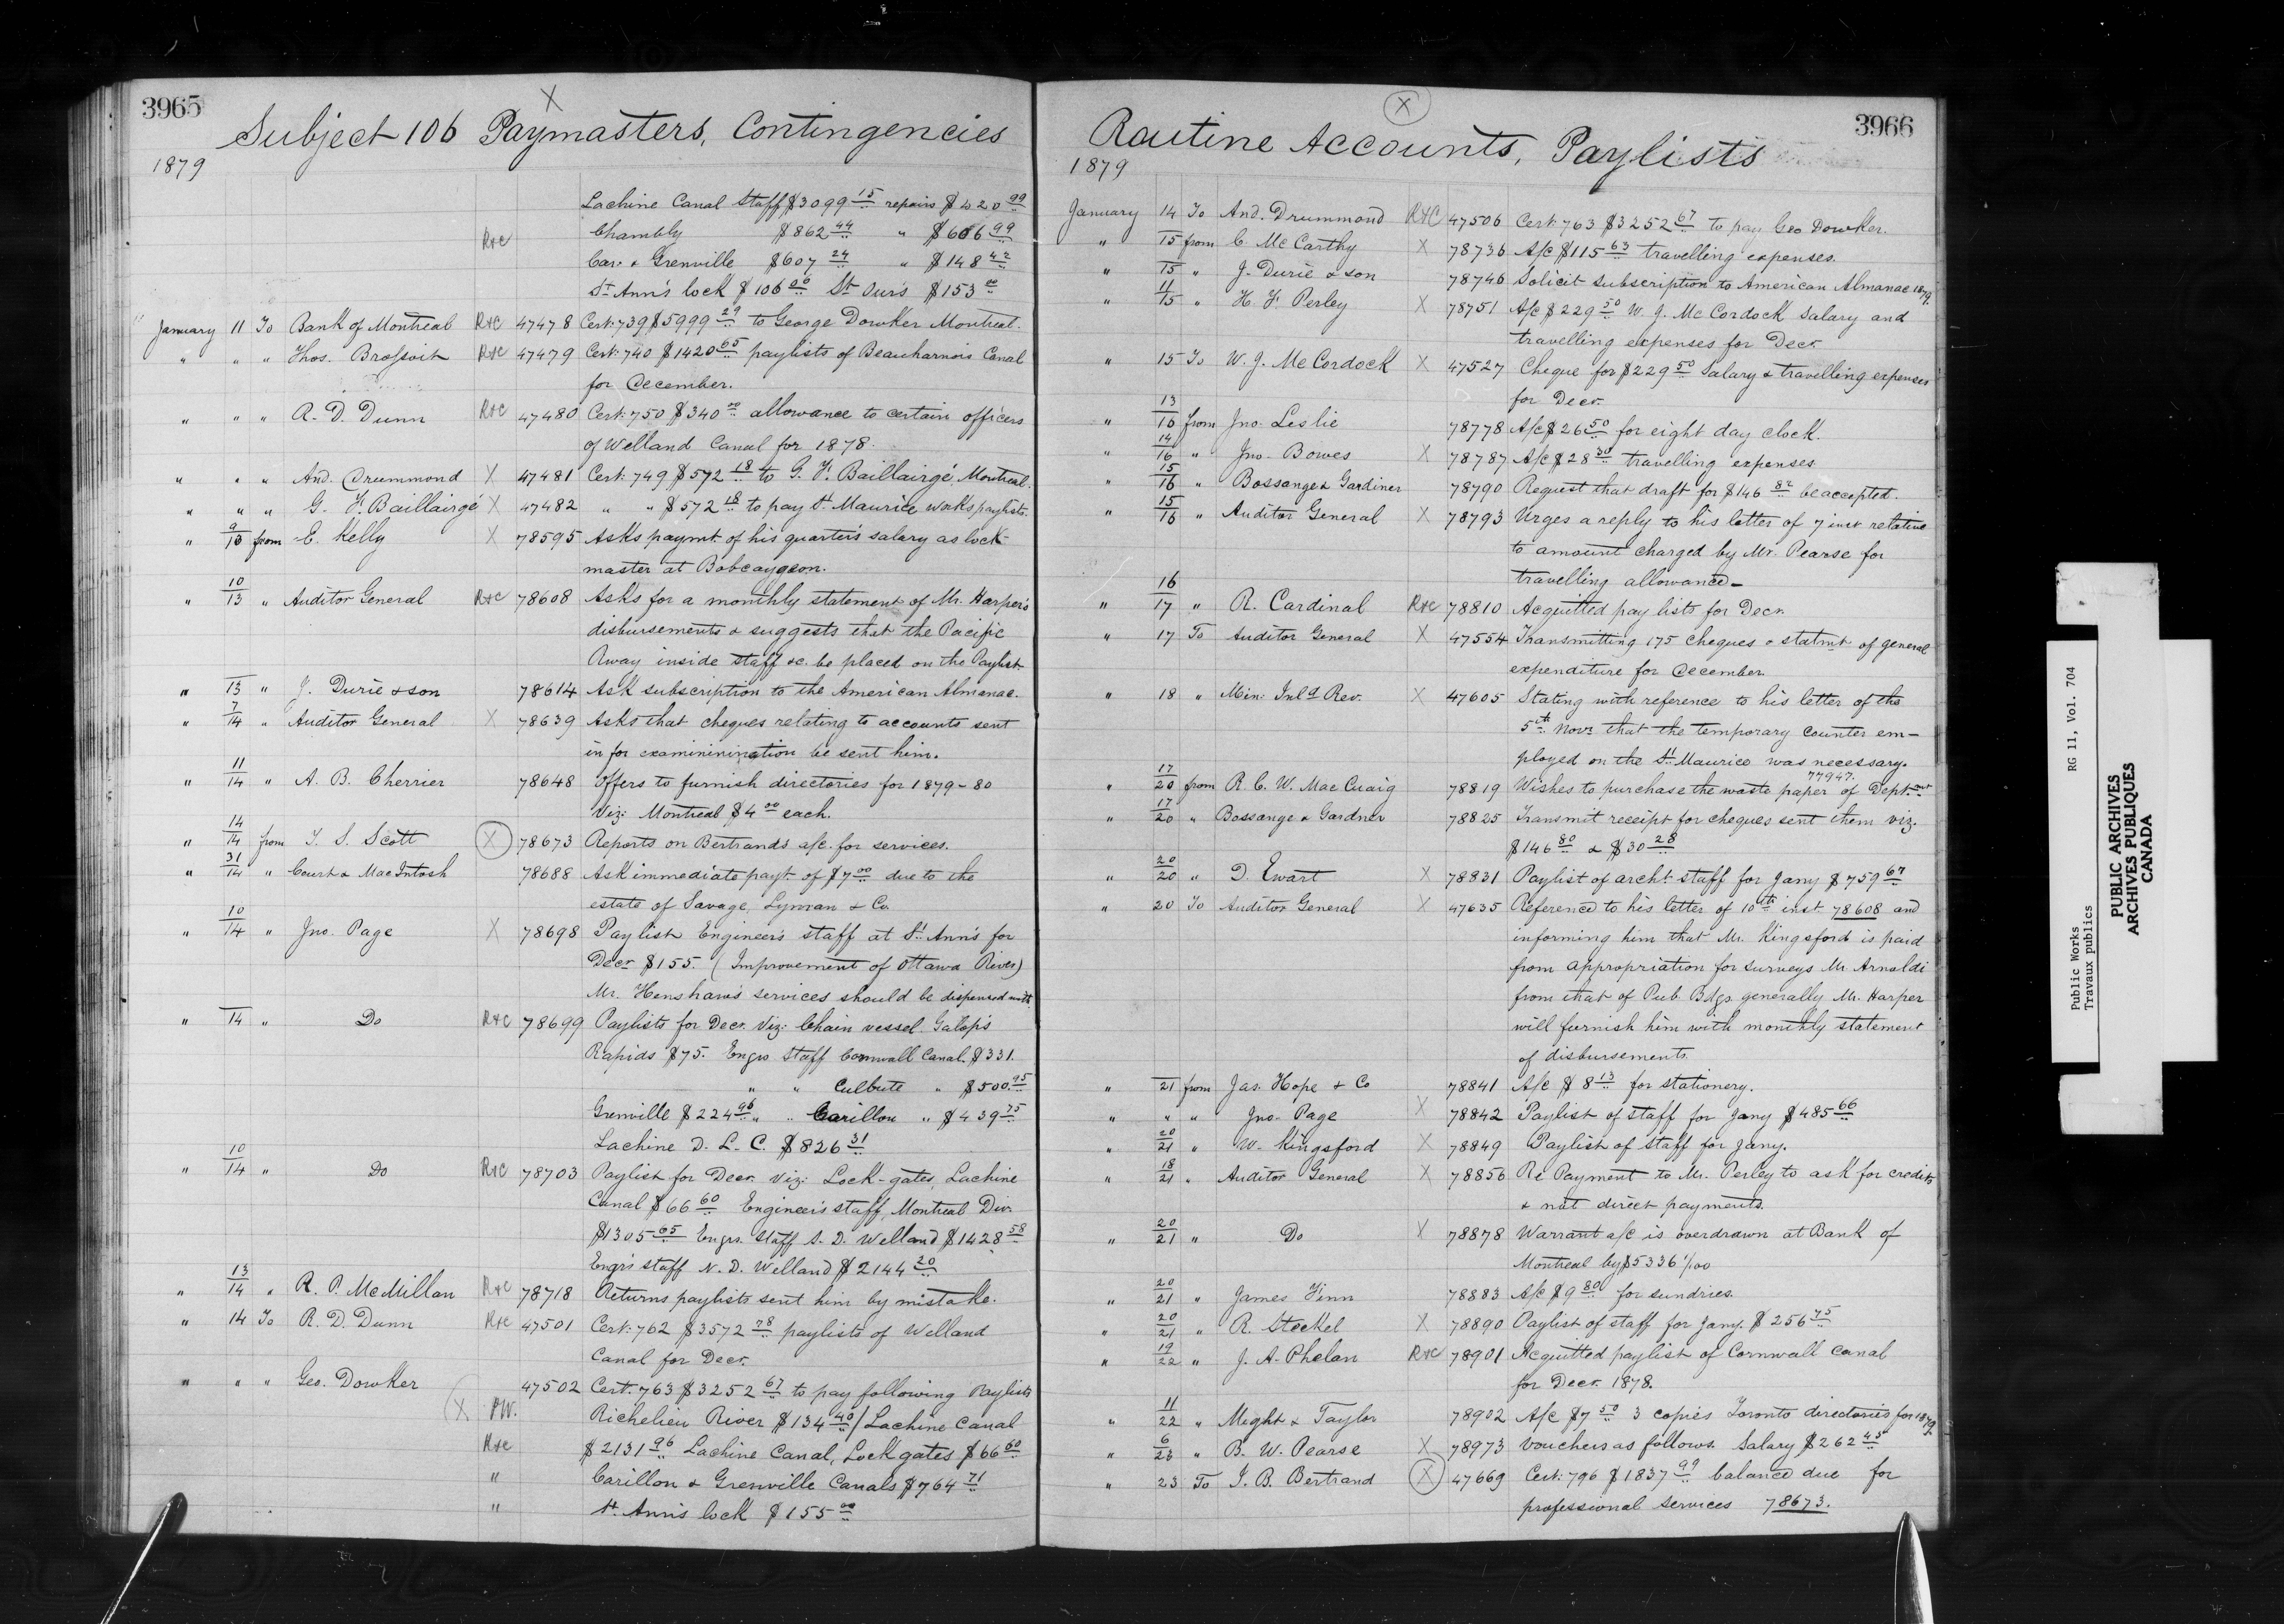 3965
X
Subject 106 Paymasters, Contingencies
1879
Lachine Canal Staff $3099 15 repairs $420 99
R&C Chambly $862 44 " $606 99
Car. & Grenville $607 24 " $148 42
St Ann's lock $106 00 St Our's $153 00
" January 11 To Bank of Montreal R&C 47478 Cert: 739 $5999 29 to George Dowker Montreal.
" " " Thos. Brossoit R&C 47479 Cert: 740 $1420 65 paylists of Beauharnois Canal
for December.
" " " R. D. Dunn R&C 47480 Cert: 750 $340 00 allowance to certain officers
of Welland Canal for 1878.
" " " And. Drummond X 47481 Cert: 749 $572 18 to G. F. Baillairgé, Montreal.
" " " G. F. Baillairgé X 47482 " " $572 18 to pay St. Maurice works paylists.
" 9/10 from E. Kelly X 78595 Asks paymt. of his quarter's salary as lock-
master at Bobcaygeon.
" 10/13 " Auditor General R&C 78608 Asks for a monthly statement of Mr. Harper's
disbursements & suggests that the Pacific
Rway inside staff &c. be placed on the Paylist
" 13 " J. Durie & son 78614 Ask subscription to the American Almanac.
" 7/14 " Auditor General X 78639 Asks that cheques relating to accounts sent
in for examininination be sent him.
" 11/14 " A. B. Cherrier 78648 Offers to furnish directories for 1879-80
Viz: Montreal $4 00 each.
" 14/14 from T. S. Scott X 78673 Reports on Bertrands a/c. for services.
" 31/14 " Court & MacIntosh 78688 Ask immediate payt. of $7 00 due to the
estate of Savage, Lyman & Co.
" 10/14 " Jno. Page X 78698 Paylist Engineer's staff at St. Ann's for
Decr $155. (Improvement of Ottawa River)
Mr. Henshaw's services should be dispensed with
" 14 " Do R&C 78699 Paylists for Decr. Viz: Chain vessel Galop's
Rapids $75. Engrs Staff Cornwall Canal. $331.
" " Culbute " $500. 95
Grenville $224 96 " " Carillon " $439 75
Lachine D. L. C. $826 31
" 10/14 " Do R&C 78703 Paylist for Decr. Viz: Lock-gates, Lachine
Canal $66 60 Engineer's staff, Montreal Div.
$1305 65 Engrs. Staff S. D. Welland $1428 58
Engr's staff N. D. Welland $2144 20
" 13/14 " R. P. McMillan R&C 78718 Returns paylists sent him by mistake.
" 14 To R. D. Dunn R&C 47501 Cert: 762 $3572 78 paylists of Welland
Canal for Decr.
" " " Geo. Dowker 47502 Cert. 763 $3252 67 to pay following Paylists
X P.W. Richelieu River $134 40 / Lachine Canal
R&C $2131 96 Lachine Canal, Lock gates $66 60
" Carillon & Grenville Canals $764 71
" St. Ann's lock $155 00
X
3966
Routine Accounts, Paylists
1879
January 14 To And. Drummond R&C 47506 Cert: 763 $3252 67 to pay Geo Dowker.
" 15 from C. McCarthy X 78736 A/c $115 63 travelling expenses.
" 15 " J. Durie & son 78746 Solicit subscription to American Almanac 1879.
" 11/15 " H. F. Perley X 78751 A/c $229 50 W. J. McCordock Salary and
travelling expenses for Decr
" 15 To W. J. McCordock X 47527 Cheque for $229 50 Salary & travelling expenses
for Decr.
" 13/16 from Jno. Leslie 78778 A/c $26 50 for eight day clock.
" 14/16 " Jno. Bowes X 78787 A/c $28 30 travelling expenses
" 15/16 " Bossange & Gardiner 78790 Request that draft for $146 82 be accepted.
" 15/16 " Auditor General X 78793 Urges a reply to his letter of 7 inst relative
to amount charged by Mr. Pearse for
travelling allowance-
" 16/17 " R. Cardinal R&C 78810 Acquitted pay lists for Decr.
" 17 To Auditor General X 47554 Transmitting 175 cheques & statmt of general
expenditure for December.
" 18 " Min: Inld Rev. X 47605 Stating with reference to his letter of the
5th Novr. that the temporary counter em-
ployed on the St. Maurice was necessary.
77947.
" 17/20 from R. C. W. MacCuaig 78819 Wishes to purchase the waste paper of Dept.
" 17/20 " Bossange & Gardner 78825 Transmit receipt for cheques sent them viz.
$146 80 & $30 28
" 20/20 " D. Ewart X 78831 Paylist of archt. staff for Jany $759 67
" 20 To Auditor General X 47635 Reference to his letter of 10th inst. 78608 and
informing him that Mr. Kingsford is paid
from appropriation for surveys Mr Arnoldi
from that of Pub. Bdgs. generally Mr. Harper
will furnish him with monthly statement
of disbursements.
" 21 from Jas. Hope & Co 78841 A/c $8 13 for stationery.
" " " Jno. Page X 78842 Paylist of staff for Jany $485 66
" 20/21 " W. Kingsford X 78849 Paylist of staff for Jany.
" 18/21 " Auditor General X 78856 Re Payment to Mr. Perley to ask for credits
& not direct payments.
" 20/21 " Do X 78878 Warrant a/c is overdrawn at Bank of
Montreal by $5336 1/100
" 20/21 " James Finn 78883 A/c $9 80 for sundries.
" 20/21 " R. Steckel X 78890 Paylist of staff for Jany. $256 75
" 19/22 " J. A. Phelan R&C 78901 Acquitted paylist of Cornwall Canal
for Decr. 1878.
" 11/22 " Might & Taylor 78902 A/c $7 50 3 copies Toronto directories for 1879.
" 6/23 " B. W. Pearse X 78973 Vouchers as follows. Salary $262 45
" 23 To J. B. Bertrand X 47669 Cert: 796 $1837 99 balance due for
professional services 78673.
Public Works RG 11, Vol. 704
Travaux publics
PUBLIC ARCHIVES
ARCHIVES PUBLIQUES
CANADA